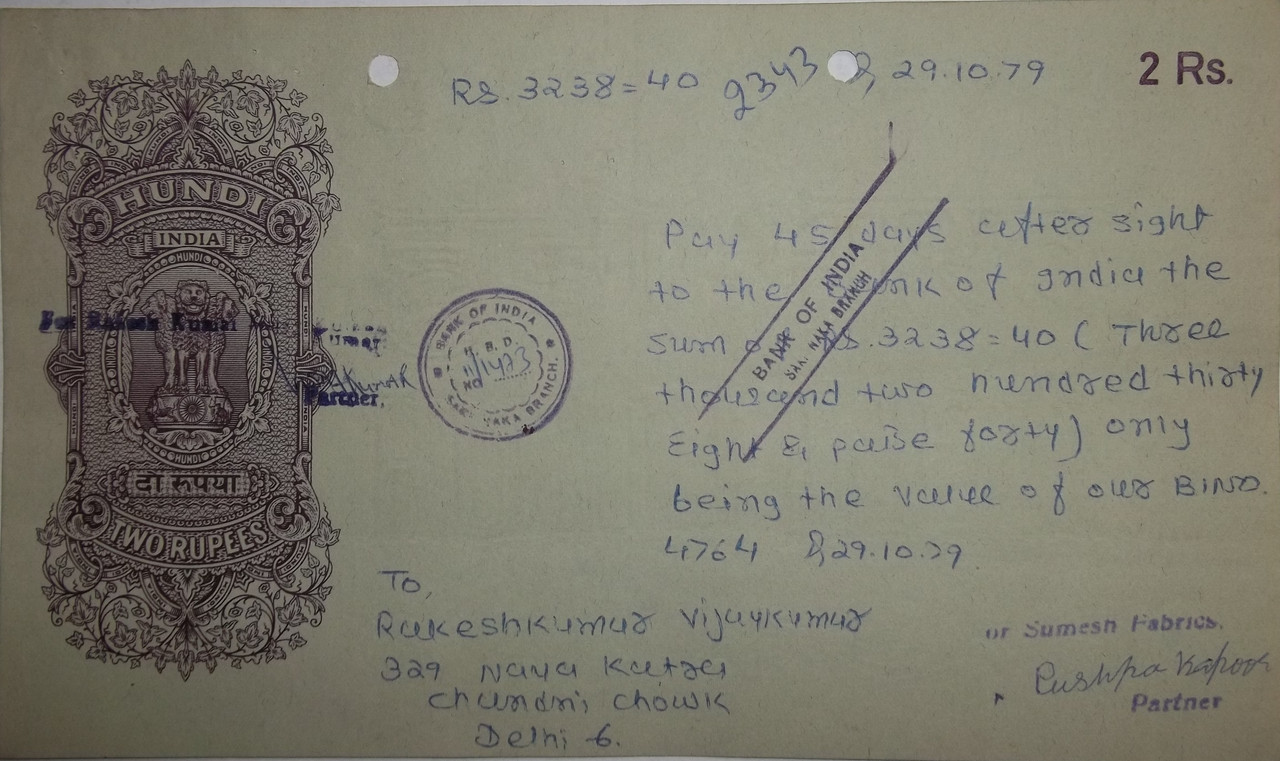 Rs. 3238=40 2343 29.10.79
2 Rs.
HUNDI
INDIA
HUNDI
For Rakesh Kumar
Kumar
Partner.
दो रूपया
TWO RUPEES
BANK OF INDIA
H. B. D.
11/1423
NO
SAKI NAKA BRANCH.
BANK OF INDIA
SAKI NAKA BRANCH
Pay 45 days after sight
to the Bank of India the
sum of Rs. 3238=40 ( Three
thousand two hundred thirty
Eight & paise forty) only
being the value of our BiNo.
4764 29.10.79
To,
Rakeshkumar Vijaykumar
329 Naya Katra
Chandni Chowk
Delhi 6.
or Sumesh Fabrics.
Pushpa Kapoor
Partner